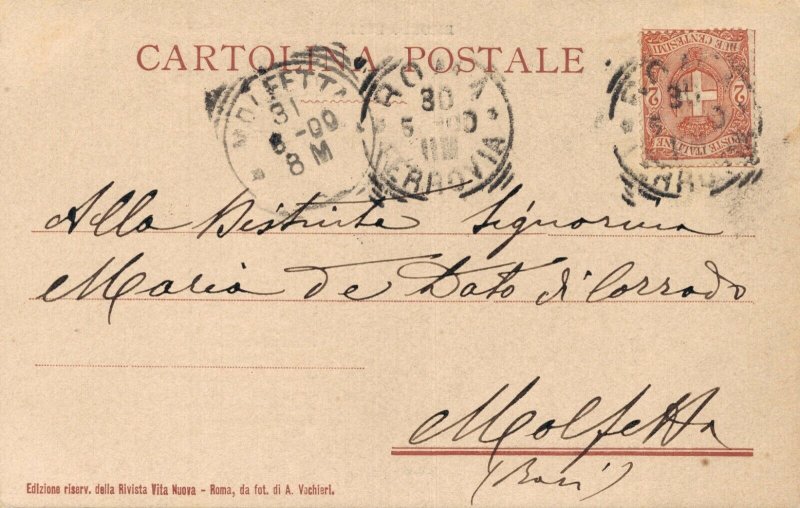 CARTOLINA POSTALE
MOLFETTA
31
5-00
8 M
ROMA
30
5-00
11M
FERROVIA
DUE CENTESIMI
2 2
POSTE ITALIANE
Alla Distinta Signorina
Maria de Dato di Corrado
Molfetta
(Bari)
Edizione riserv. della Rivista Vita Nuova - Roma, da fot. di A. Vochieri.